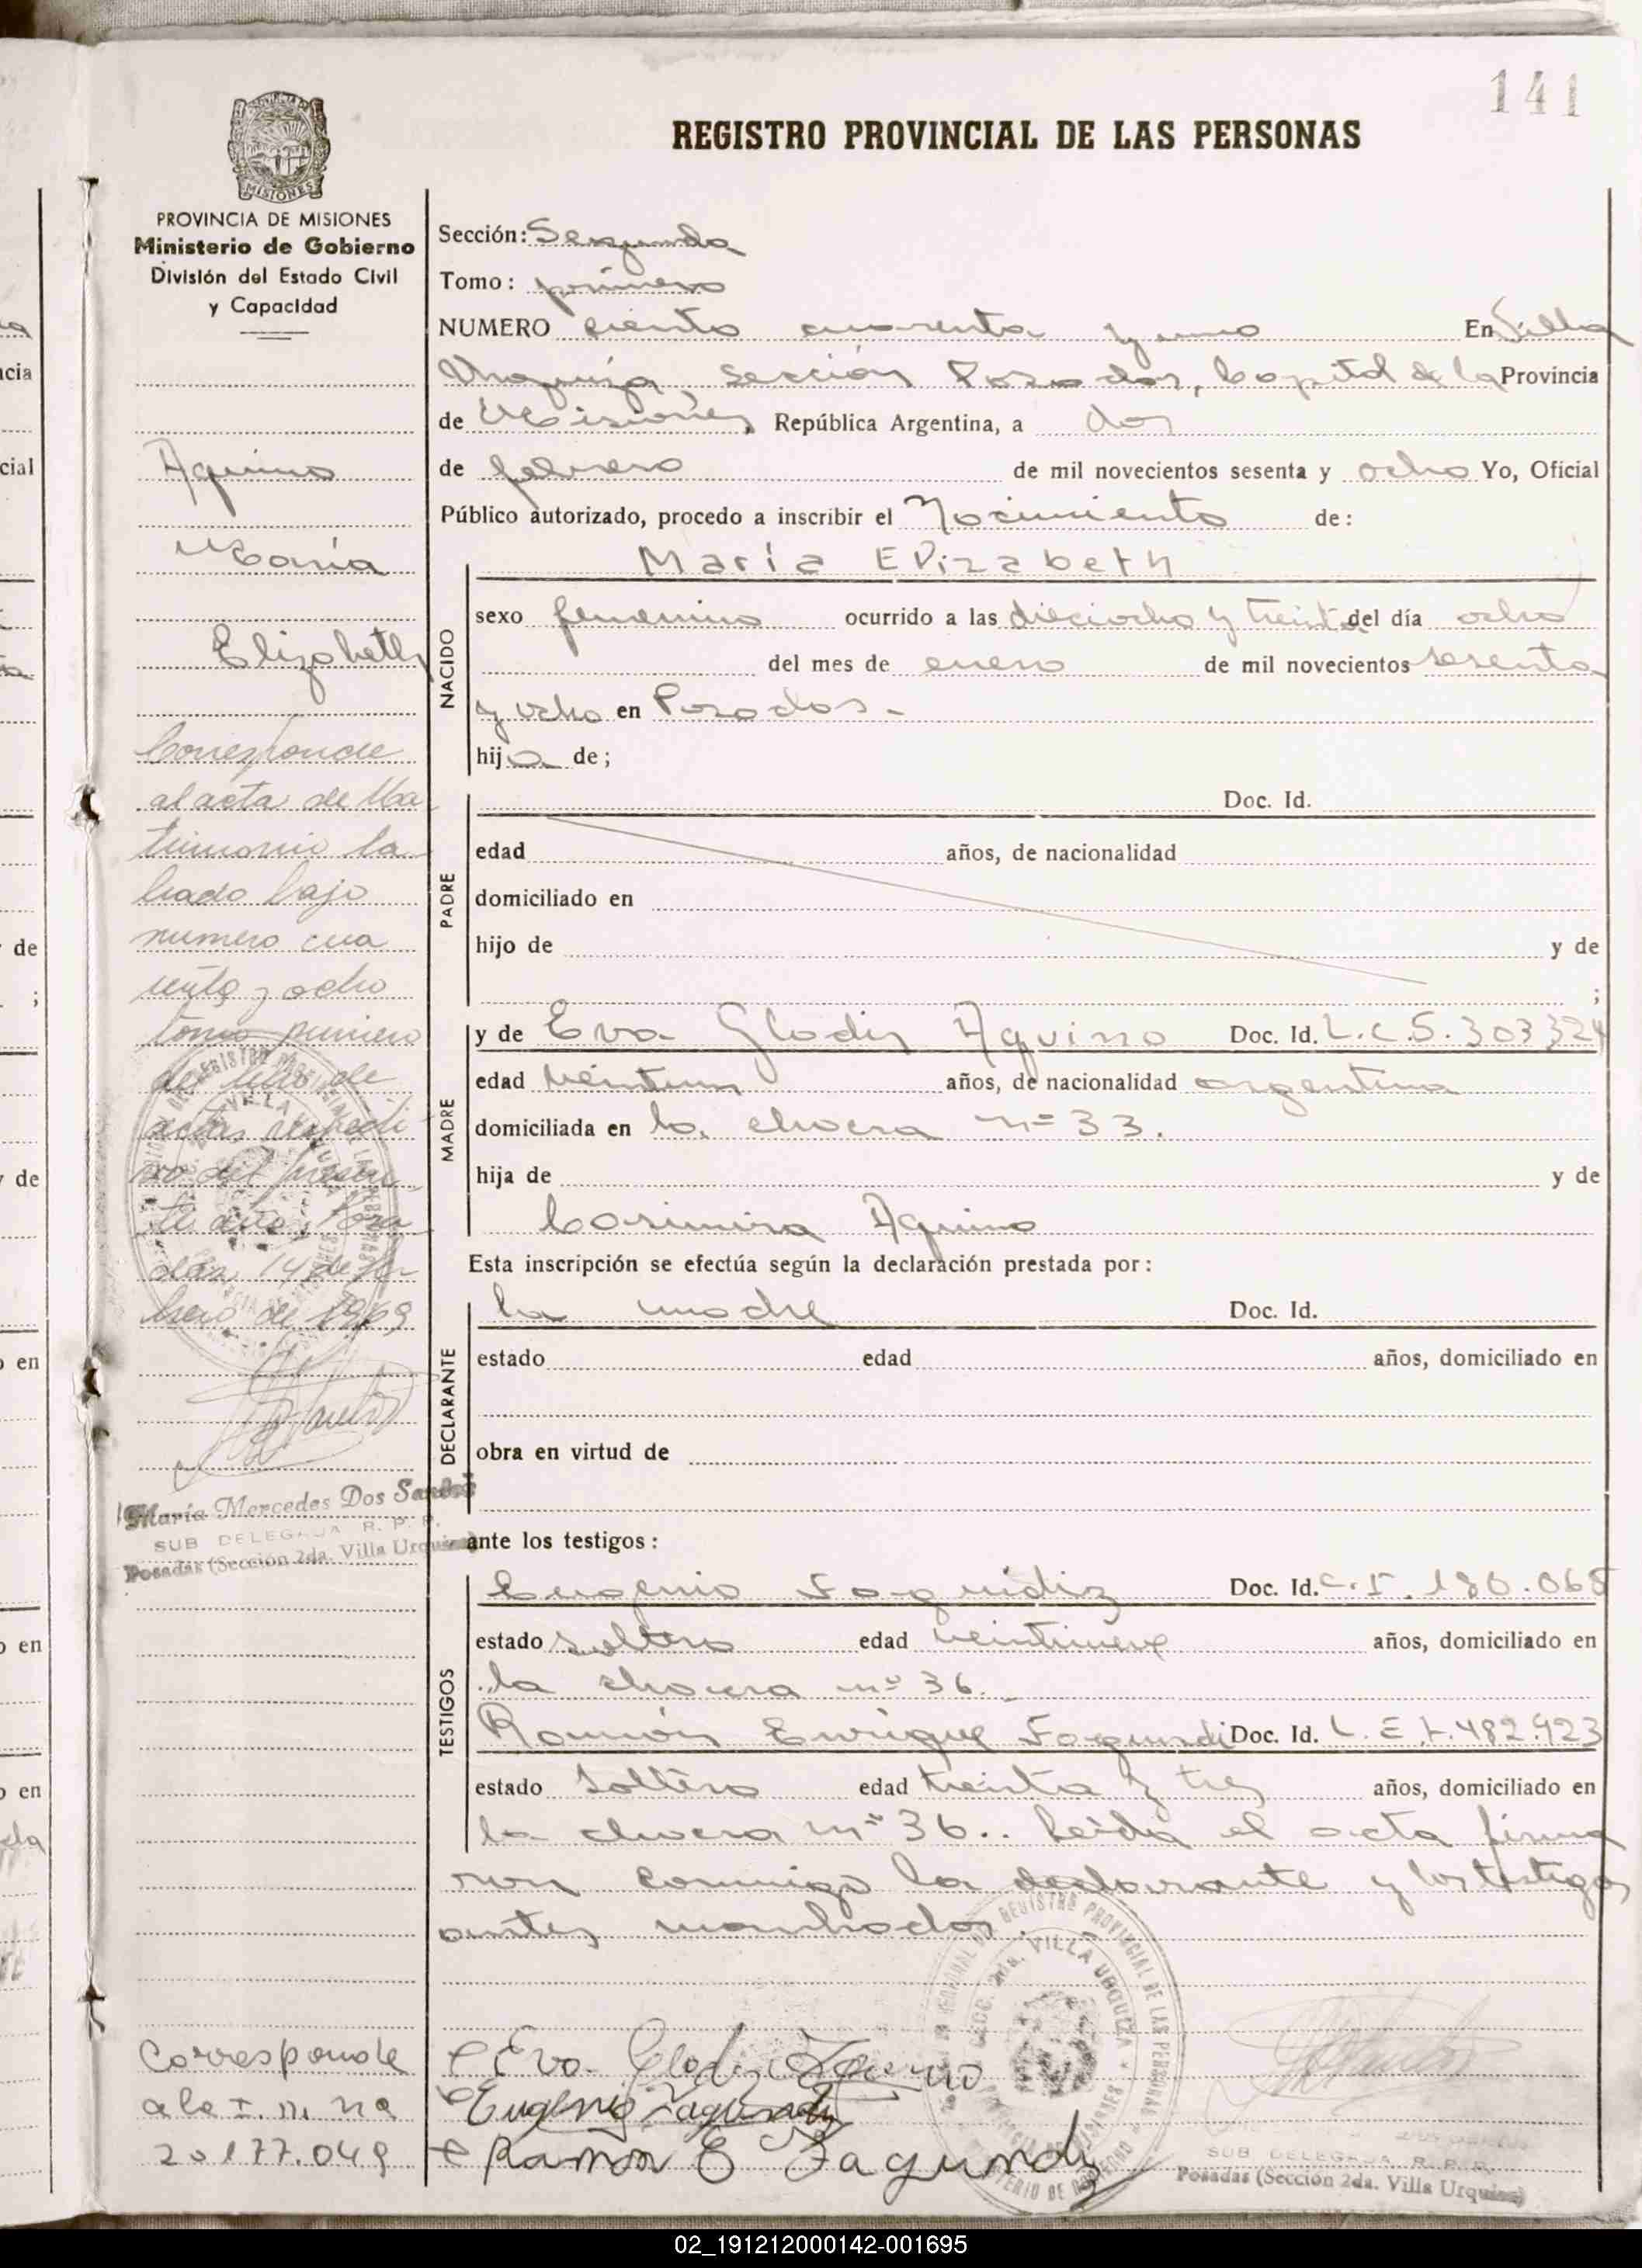 141
REGISTRO PROVINCIAL DE LAS PERSONAS
MISIONES
PROVINCIA DE MISIONES
Ministerio de Gobierno
División del Estado Civil
y Capacidad
Aquino
María
Elizabeth
Corresponde
al acta de Ma
trimonio la
brado bajo
numero cua
renta y ocho
tomo primero
del libro de
actas respecti
vo del presen
te año, Posa
das, 14 de fe
brero de 1969
María Mercedes Dos Santos
SUB DELEGADA R. P. P.
Posadas (Sección 2da. Villa Urquiza)
Corresponde
a la I. M. Nº
20177.049
Sección: Segunda
Tomo: primero
NUMERO ciento cuarenta y uno En Villa
Urquiza, Sección Posadas, Capital de la Provincia
de Misiones, República Argentina, a dos
de febrero de mil novecientos sesenta y ocho Yo, Oficial
Público autorizado, procedo a inscribir el Nacimiento de:
María Elizabeth
NACIDO
sexo femenino ocurrido a las dieciocho y treinta del día ocho
del mes de enero de mil novecientos sesenta
y ocho en Posadas.-
hija de;
PADRE
Doc. Id.
edad años, de nacionalidad
domiciliado en
hijo de y de
;
MADRE
y de Eva Gladis Aquino Doc. Id. L.C.5.303324
edad veintiun años, de nacionalidad argentina
domiciliada en la chacra nº 33.
hija de y de
Casimira Aquino
Esta inscripción se efectúa según la declaración prestada por:
DECLARANTE
la madre Doc. Id.
estado edad años, domiciliado en
obra en virtud de
ante los testigos:
TESTIGOS
Eugenio Doc. Id. C.I. 180.068
estado soltero edad veintinueve años, domiciliado en
la chacra nº 36.
Ramón Enrique Fagundi Doc. Id. L.E.7.482.923
estado soltero edad treinta y tres años, domiciliado en
la chacra nº 36.. Leída el acta firma
ron conmigo la declarante y los testigos
antes nombrados.
Eva Gladis Aquino
Eugenio
Ramon E Fagundi
REGISTRO PROVINCIAL DE LAS PERSONAS
SECC. 2da. VILLA URQUIZA
SUB DELEGADA R. P. P.
Posadas (Sección 2da. Villa Urquiza)
02_191212000142-001695